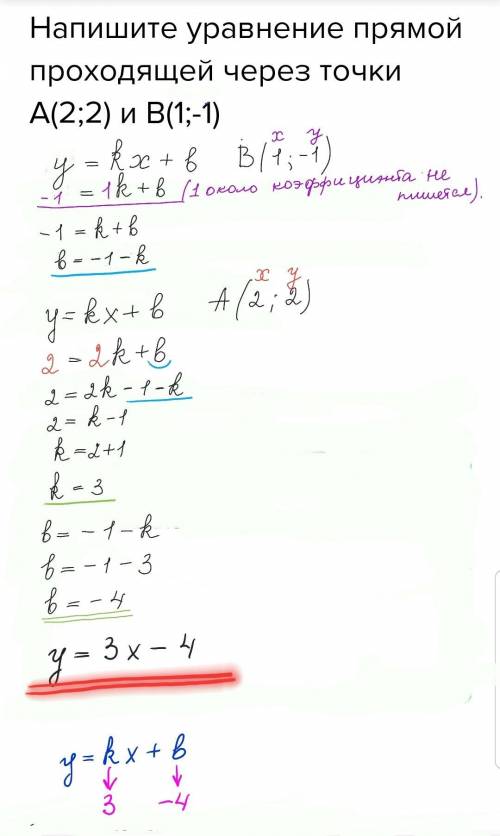 Напишите уравнение прямой
проходящей через точки
А(2;2) и В(1;-1)
x y
y = kx + в В(1;-1)
-1 = 1k+в (1 около коэффициента не пишется).
-1 = k+в
в = -1-k
x y
y = kx + в А(2;2)
2 = 2k+в
2 = 2k-1-k
2 = k-1
k = 2+1
k = 3
в = -1-k
в = -1-3
в = -4
y = 3x-4
y = kx + в
↓ ↓
3 -4